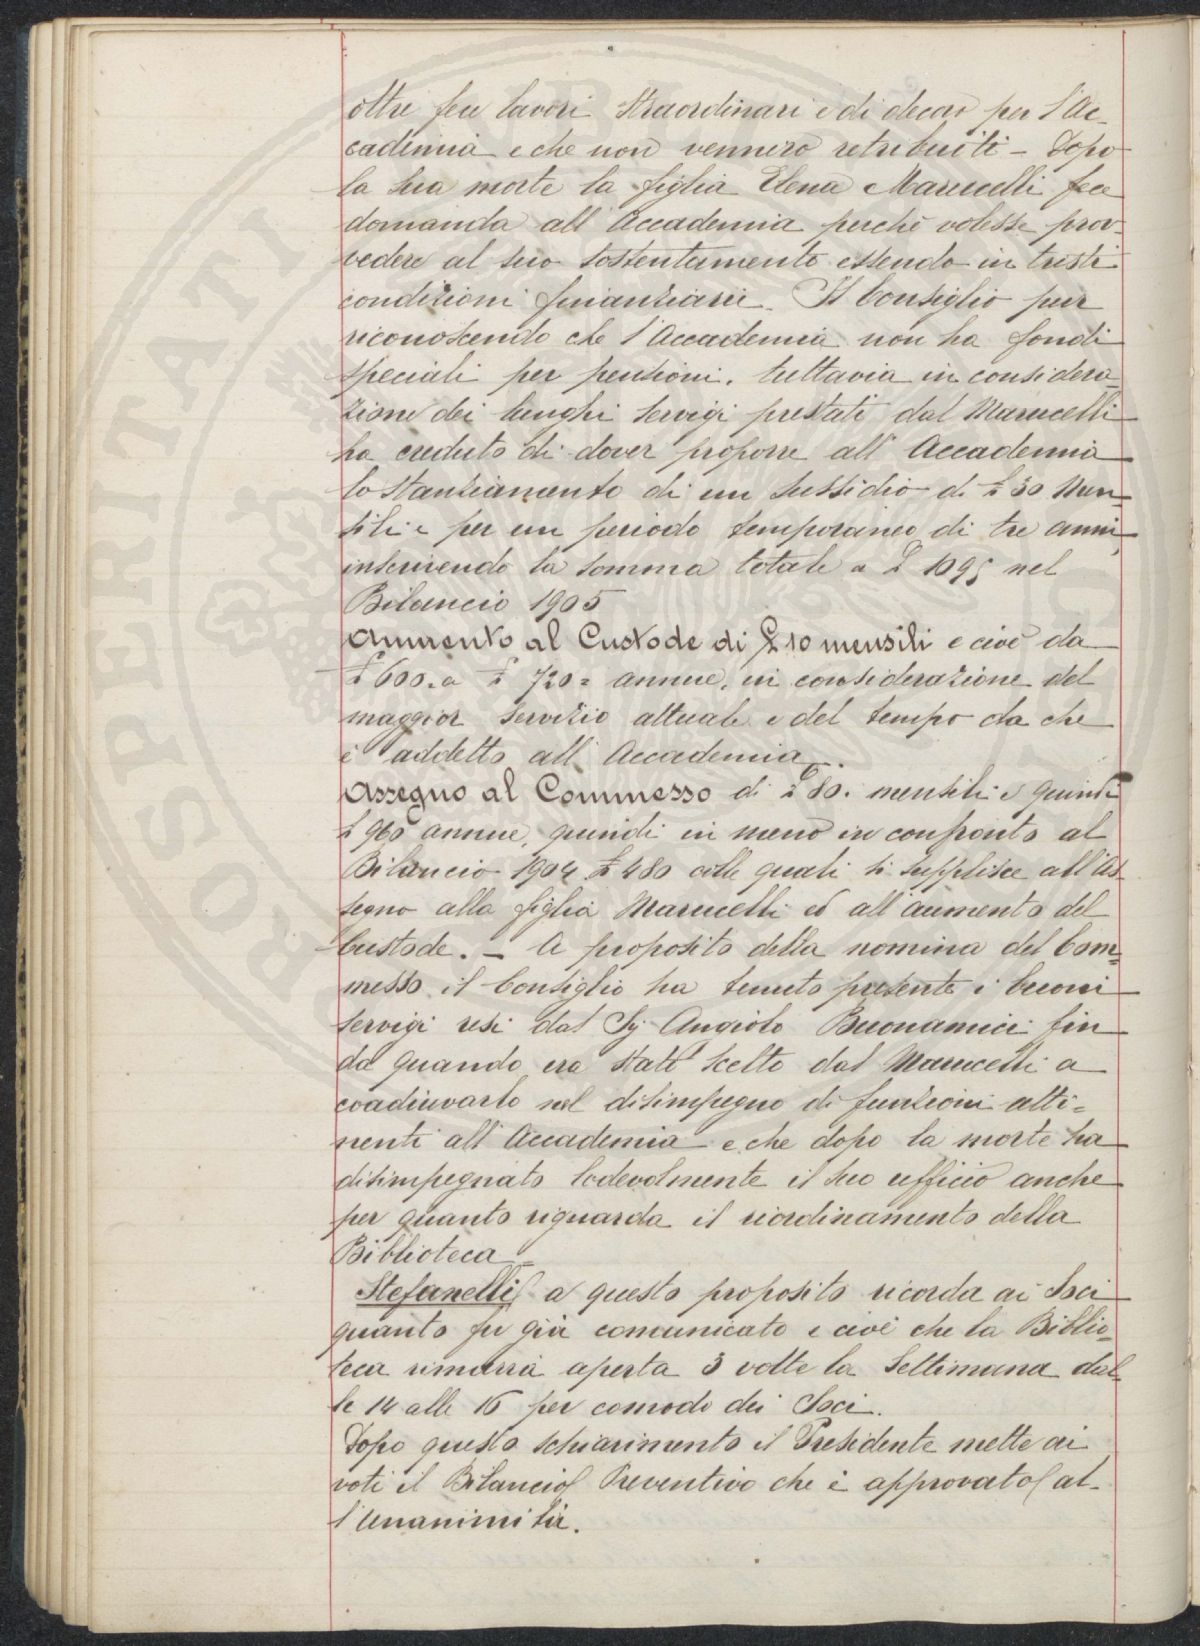 oltre fece lavori straordinari e di decoro per l'Ac-
cademia e che non vennero retribuiti - Dopo
la sua morte la figlia Elena Marucelli fece
domanda all'Accademia perchè volesse prov-
vedere al suo sostentamento essendo in tristi
condizioni finanziarie. Il Consiglio pur
riconoscendo che l'Accademia non ha fondi
speciali per pensioni, tuttavia in considera-
zione dei lunghi servigi prestati dal Marucelli
ha creduto di dover proporre all'Accademia
lo stanziamento di un sussidio di £ 30 men=
sili e per un periodo temporaneo di tre anni
inscrivendo la somma totale a £ 1095 nel
Bilancio 1905
Aumento al Custode di £ 10 mensili e cioè da
£ 600= a £ 720= annue, in considerazione del
maggior servizio attuale e del tempo da che
è addetto all'Accademia.
Assegno al Commesso di £ 80. mensili e quindi
£ 960 annue, quindi in meno in confronto al
Bilancio 1904 £ 480 colle quali si supplisce all'As
segno alla figlia Marucelli ed all'aumento del
Custode. - A proposito della nomina del Com=
messo il Consiglio ha tenuto presente i buoni
servigi resi dal Sig. Angiolo Buonamici fin
da quando era stato scelto dal Marucelli a
coadiuvarlo nel disimpegno di funzioni atti=
nenti all'Accademia e che dopo la morte ha
disimpegnato lodevolmente il suo ufficio anche
per quanto riguarda il riordinamento della
Biblioteca
Stefanelli a questo proposito ricorda ai Soci
quanto fu già comunicato e cioè che la Biblio=
teca rimarrà aperta 3 volte la Settimana dal-
le 14 alle 16 per comodo dei Soci.
Dopo questo schiarimento il Presidente mette ai
voti il Bilancio Preventivo che è approvato al-
l'unanimità.
SPERITATI